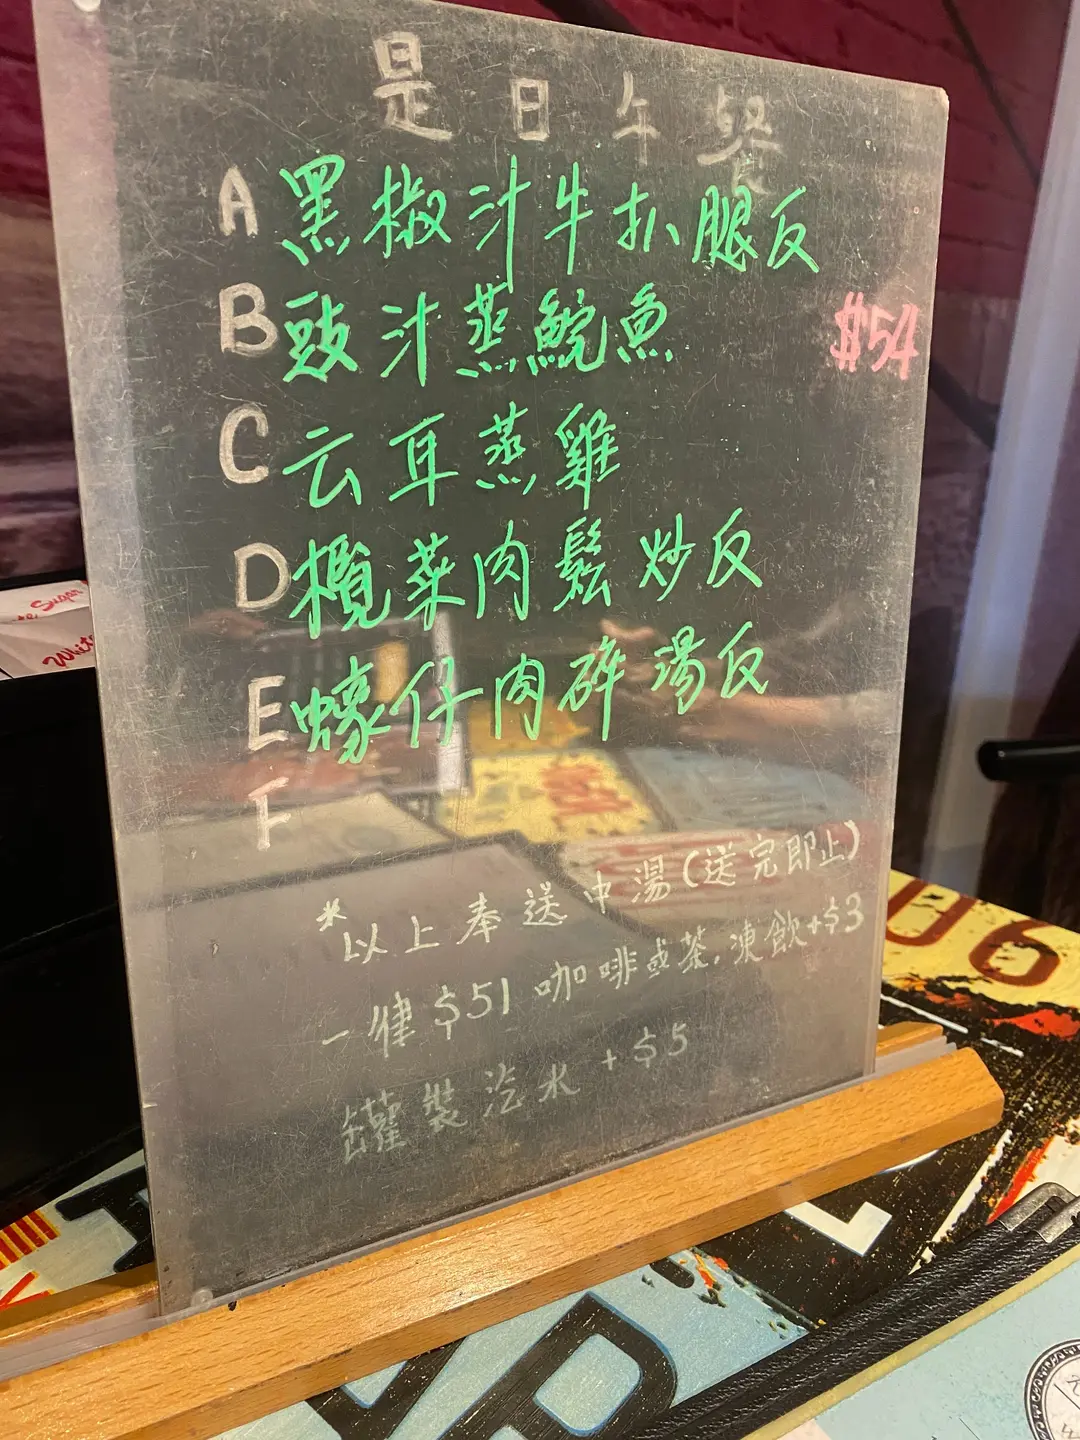 是日午餐
A 黑椒汁牛扒腿反
B 豉汁蒸鯇魚
$54
C 云耳蒸雞
D 欖菜肉鬆炒反
E 蠔仔肉碎湯反
F
*以上奉送中湯(送完即止)
一律$51 咖啡或茶,凍飲+$3
罐裝汽水+$5
White Sugar
White
06